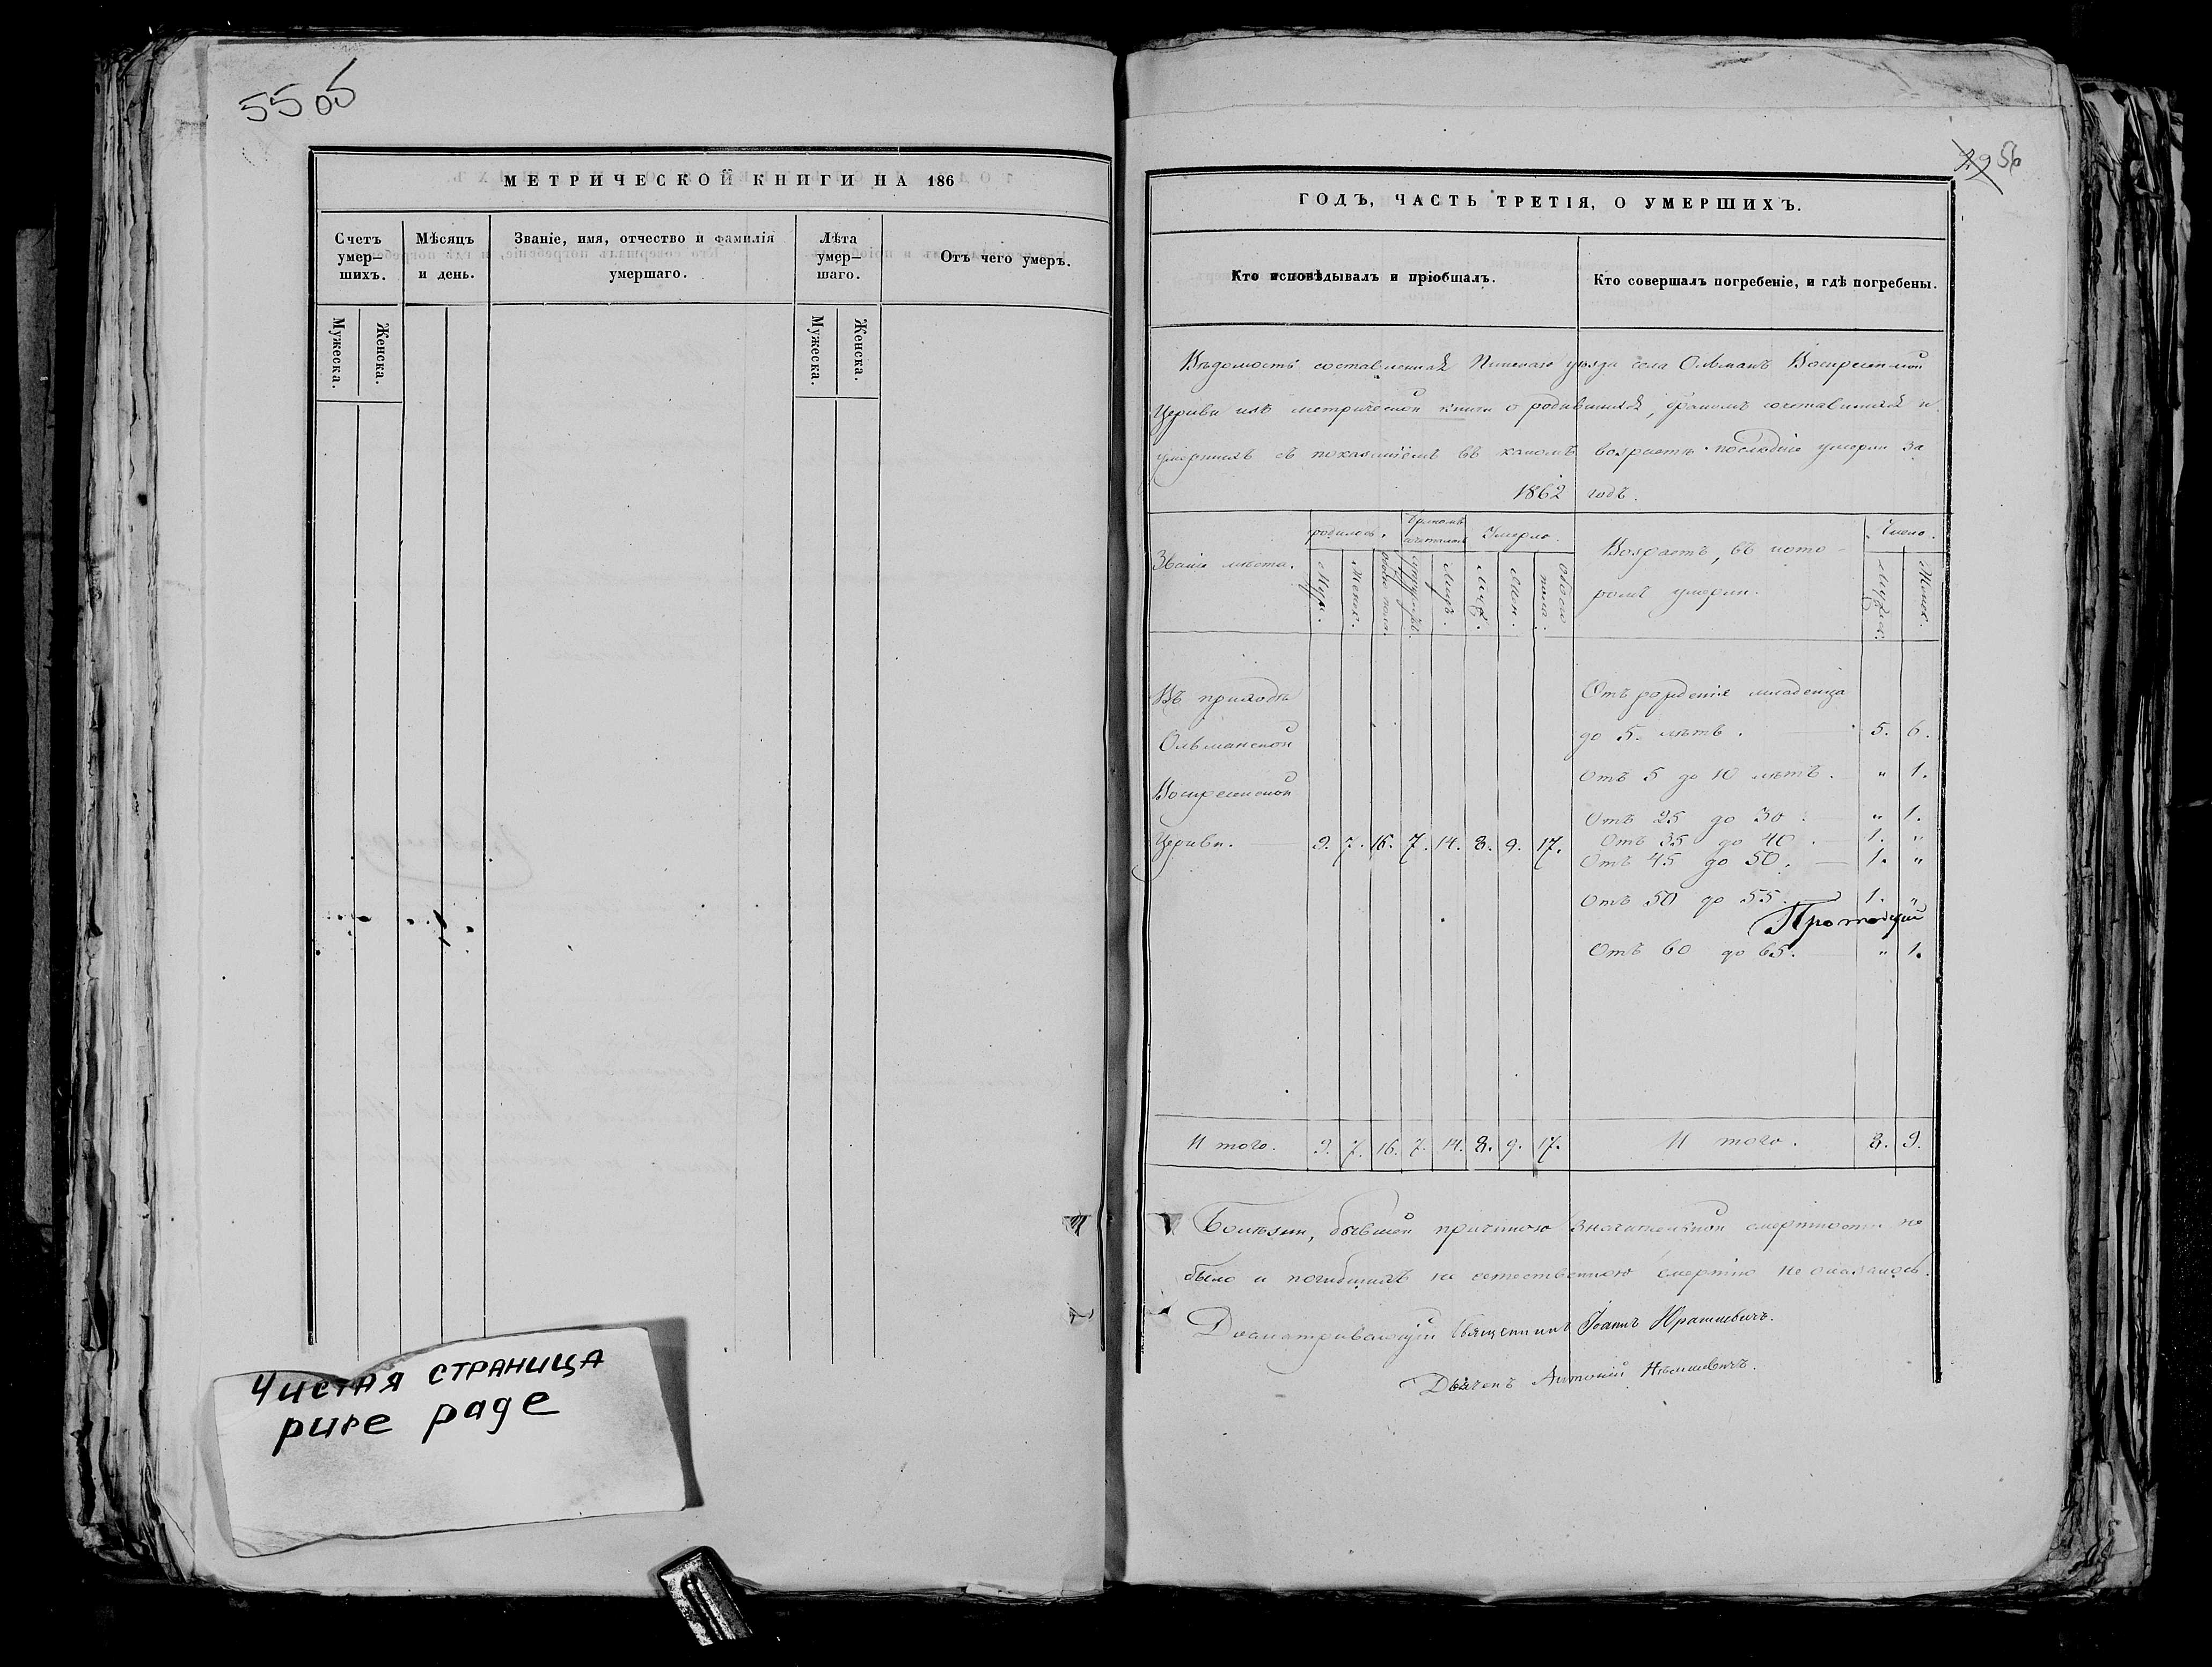 55 об
МЕТРИЧЕСКОЙ КНИГИ НА 186
Счетъ умер— шихъ.
Мѣсяцъ и день.
Званіе, имя, отчество и фамилія умершаго.
Лѣта умер— шаго.
Отъ чего умеръ.
Мужеска.
Женска.
Мужеска.
Женска.
Чистая страница
pure page
29 56
ГОДЪ, ЧАСТЬ ТРЕТІЯ, О УМЕРШИХЪ.
Кто исповѣдывалъ и пріобщалъ.
Кто совершалъ погребеніе, и гдѣ погребены.
Вѣдомость составленная Пинскаго уѣзда села Ольманъ Воскресенской
Церкви изъ метрической книги о родившихся, бракомъ сочетавшихся и
умершихъ съ показаніемъ въ какомъ возрастѣ послѣдніе умерли за
1862 годъ.
Званіе мѣста.
родилось.
Бракомъ сочеталось
Умерло.
Возрастъ, въ кото-
ромъ умерли.
Число.
Муж.
Женск.
Обоего пола.
Супружествъ.
Лицъ.
Муж.
Жен.
Обоего пола.
Мужск.
Женск.
Въ приходѣ
Ольманской
Воскресенской
Церкви. 9. 7. 16. 7. 14. 8. 9. 17.
Отъ рожденія младенца
до 5. лѣтъ. 5. 6.
Отъ 5 до 10 лѣтъ. „ 1.
Отъ 25 до 30. „ 1.
Отъ 35 до 40. 1. „
Отъ 45 до 50. 1. „
Отъ 50 до 55. 1. „
Отъ 60 до 65. „ 1.
И того. 9. 7. 16. 7. 14. 8. 9. 17. И того. 8. 9.
Болѣзни, бывшей причиною значительной смертности не
было и погибшихъ не естественною смертію не оказалось.
Досматривающій Священникъ Іоаннъ
Дьячекъ Антоній